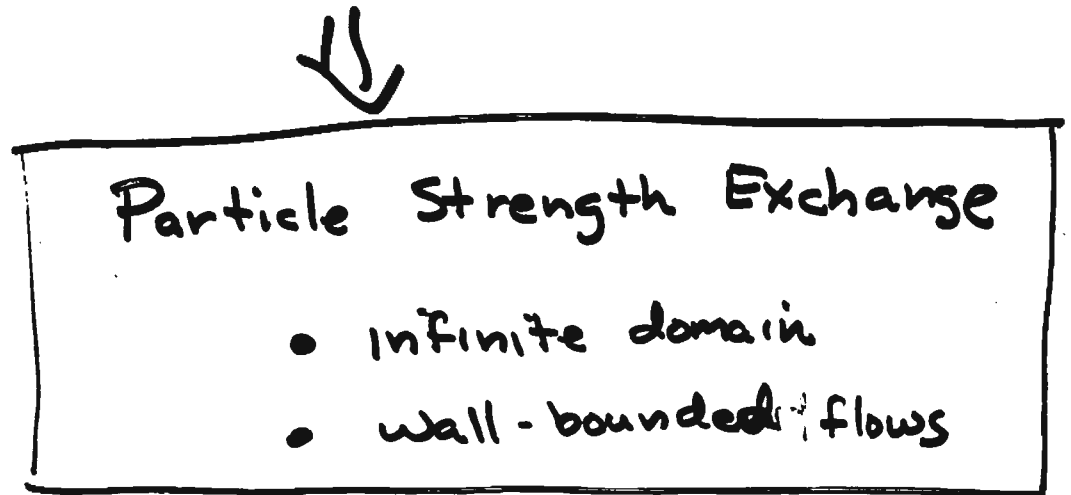 Particle Strength Exchange
• infinite domain
• wall-bounded flows